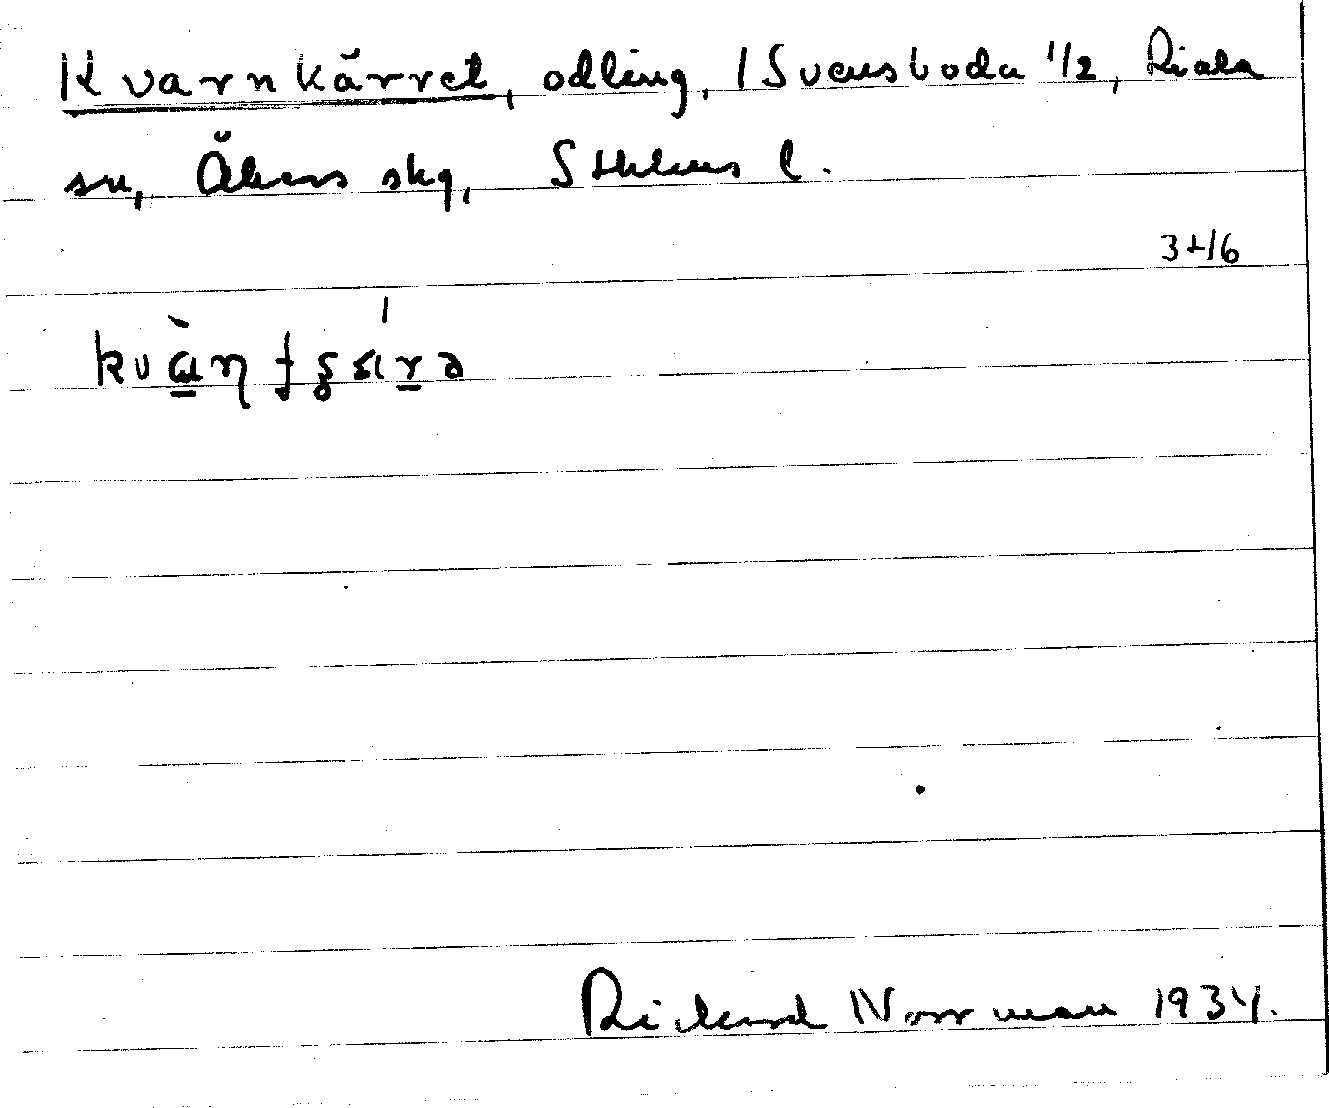 Kvarnkärret, odling, 1 Svensboda 1/2, Riala
sn, Åkers skg, Sthlms l.
3416
Rickard Norrman 1934.